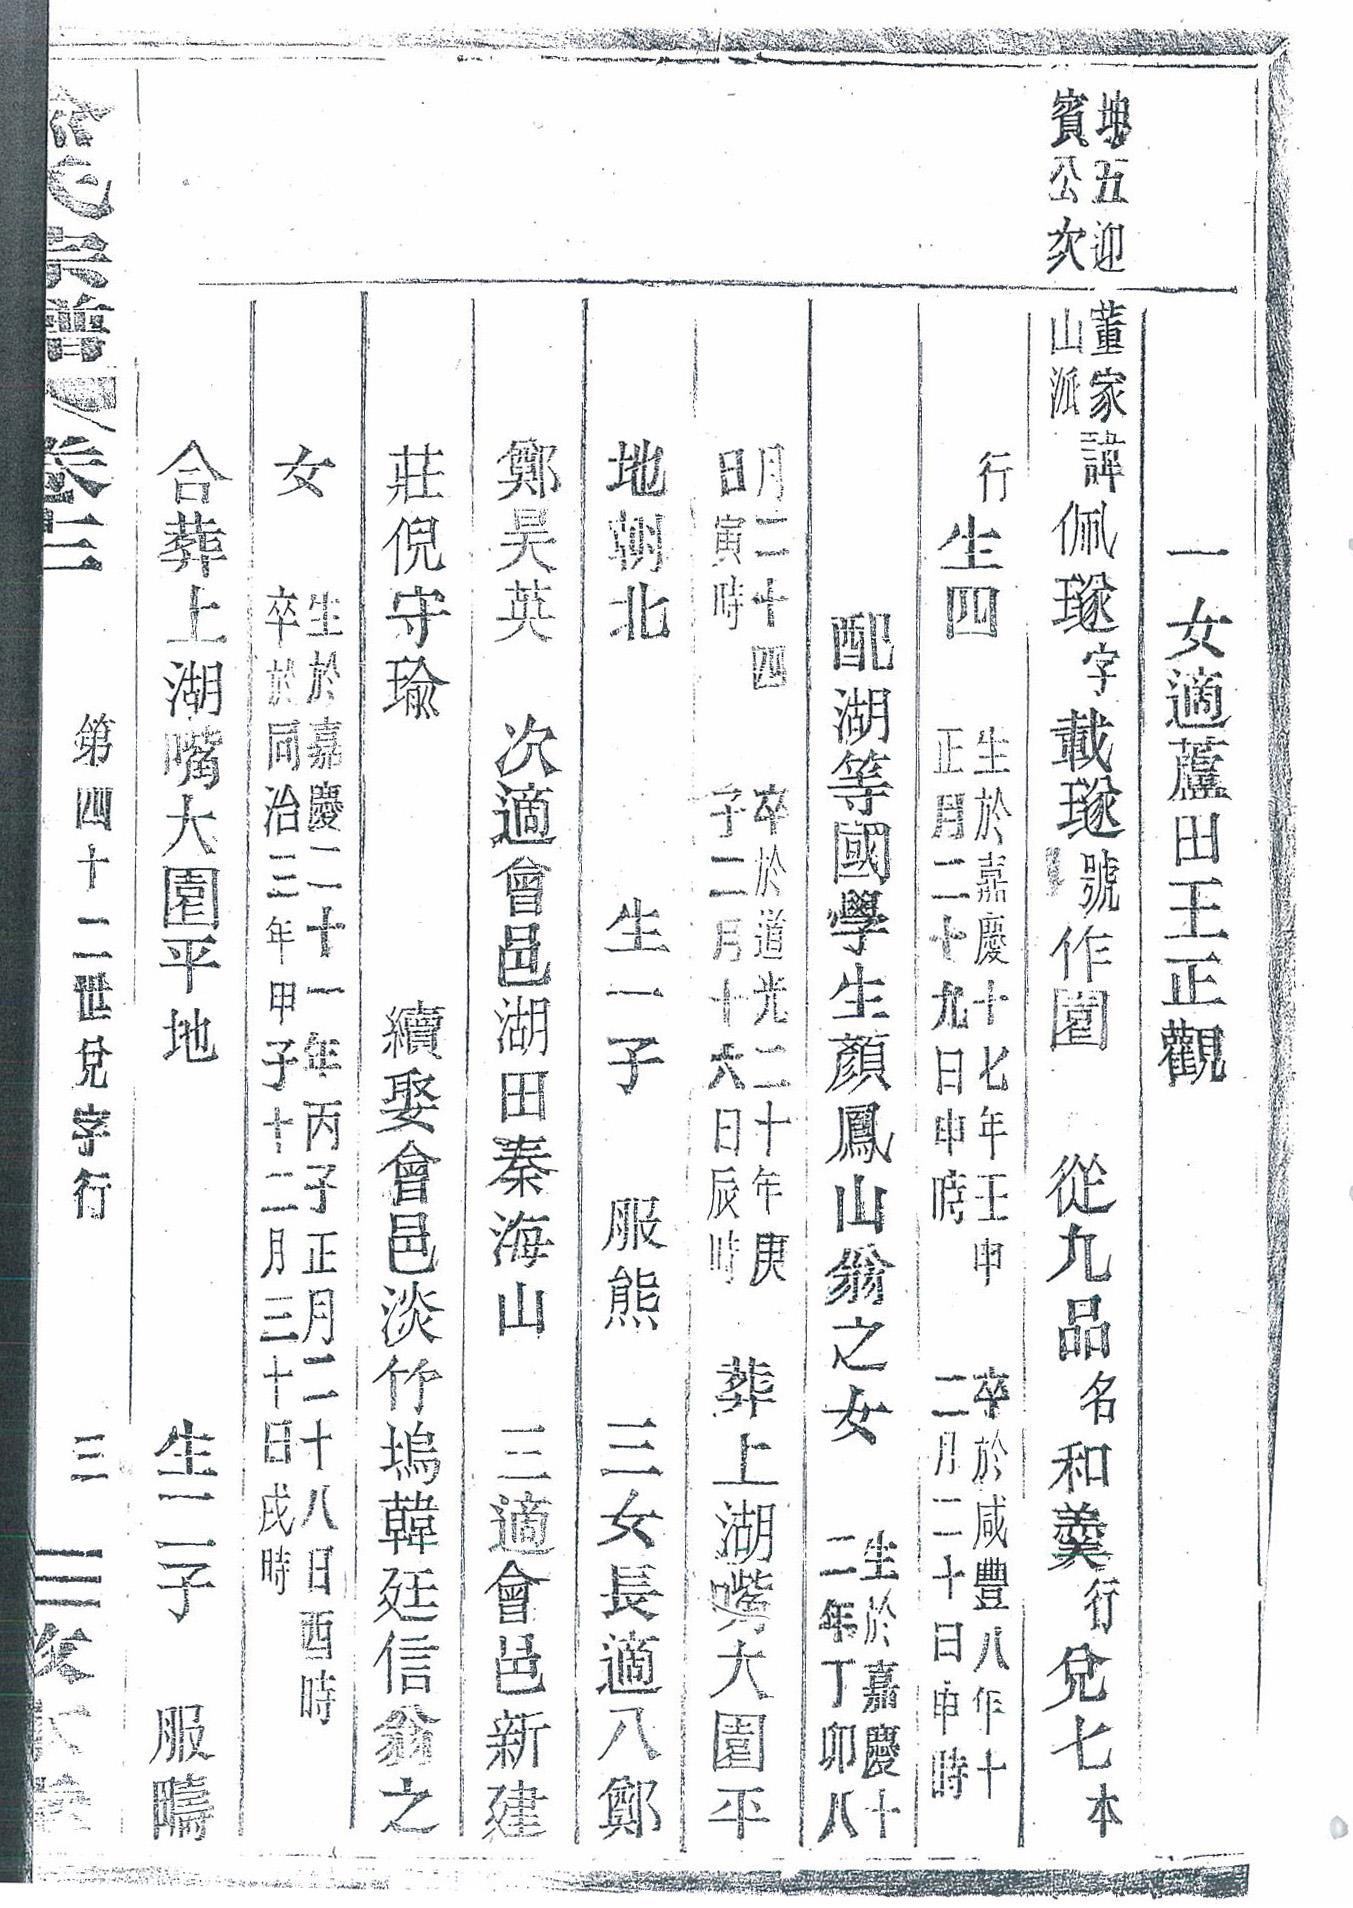 一女適蘆田王正觀
坤五迎
賓公次
董家
山派
諱佩璲字載璲號作園　從九品名和羹行兌七本
行生四
生於嘉慶十七年壬申
正月二十九日申時
卒於咸豐八年十
二月二十日申時
配湖等國學生顏鳳山翁之女
生於嘉慶十
二年丁卯八
月二十四
日寅時
卒於道光二十年庚
子二月十六日辰時
葬上湖嘴大園平
地朝北　生一子　服熊　三女長適八鄭
鄭昊英　次適會邑湖田秦海山　三適會邑新建
莊倪守瑜　續娶會邑淡竹塢韓廷信翁之
女
生於嘉慶二十一年丙子正月二十八日酉時
卒於同治三年甲子十二月三十日戌時
合葬上湖嘴大園平地　生二子　服疇
氏宗譜　卷三
第四十二世兌字行　三